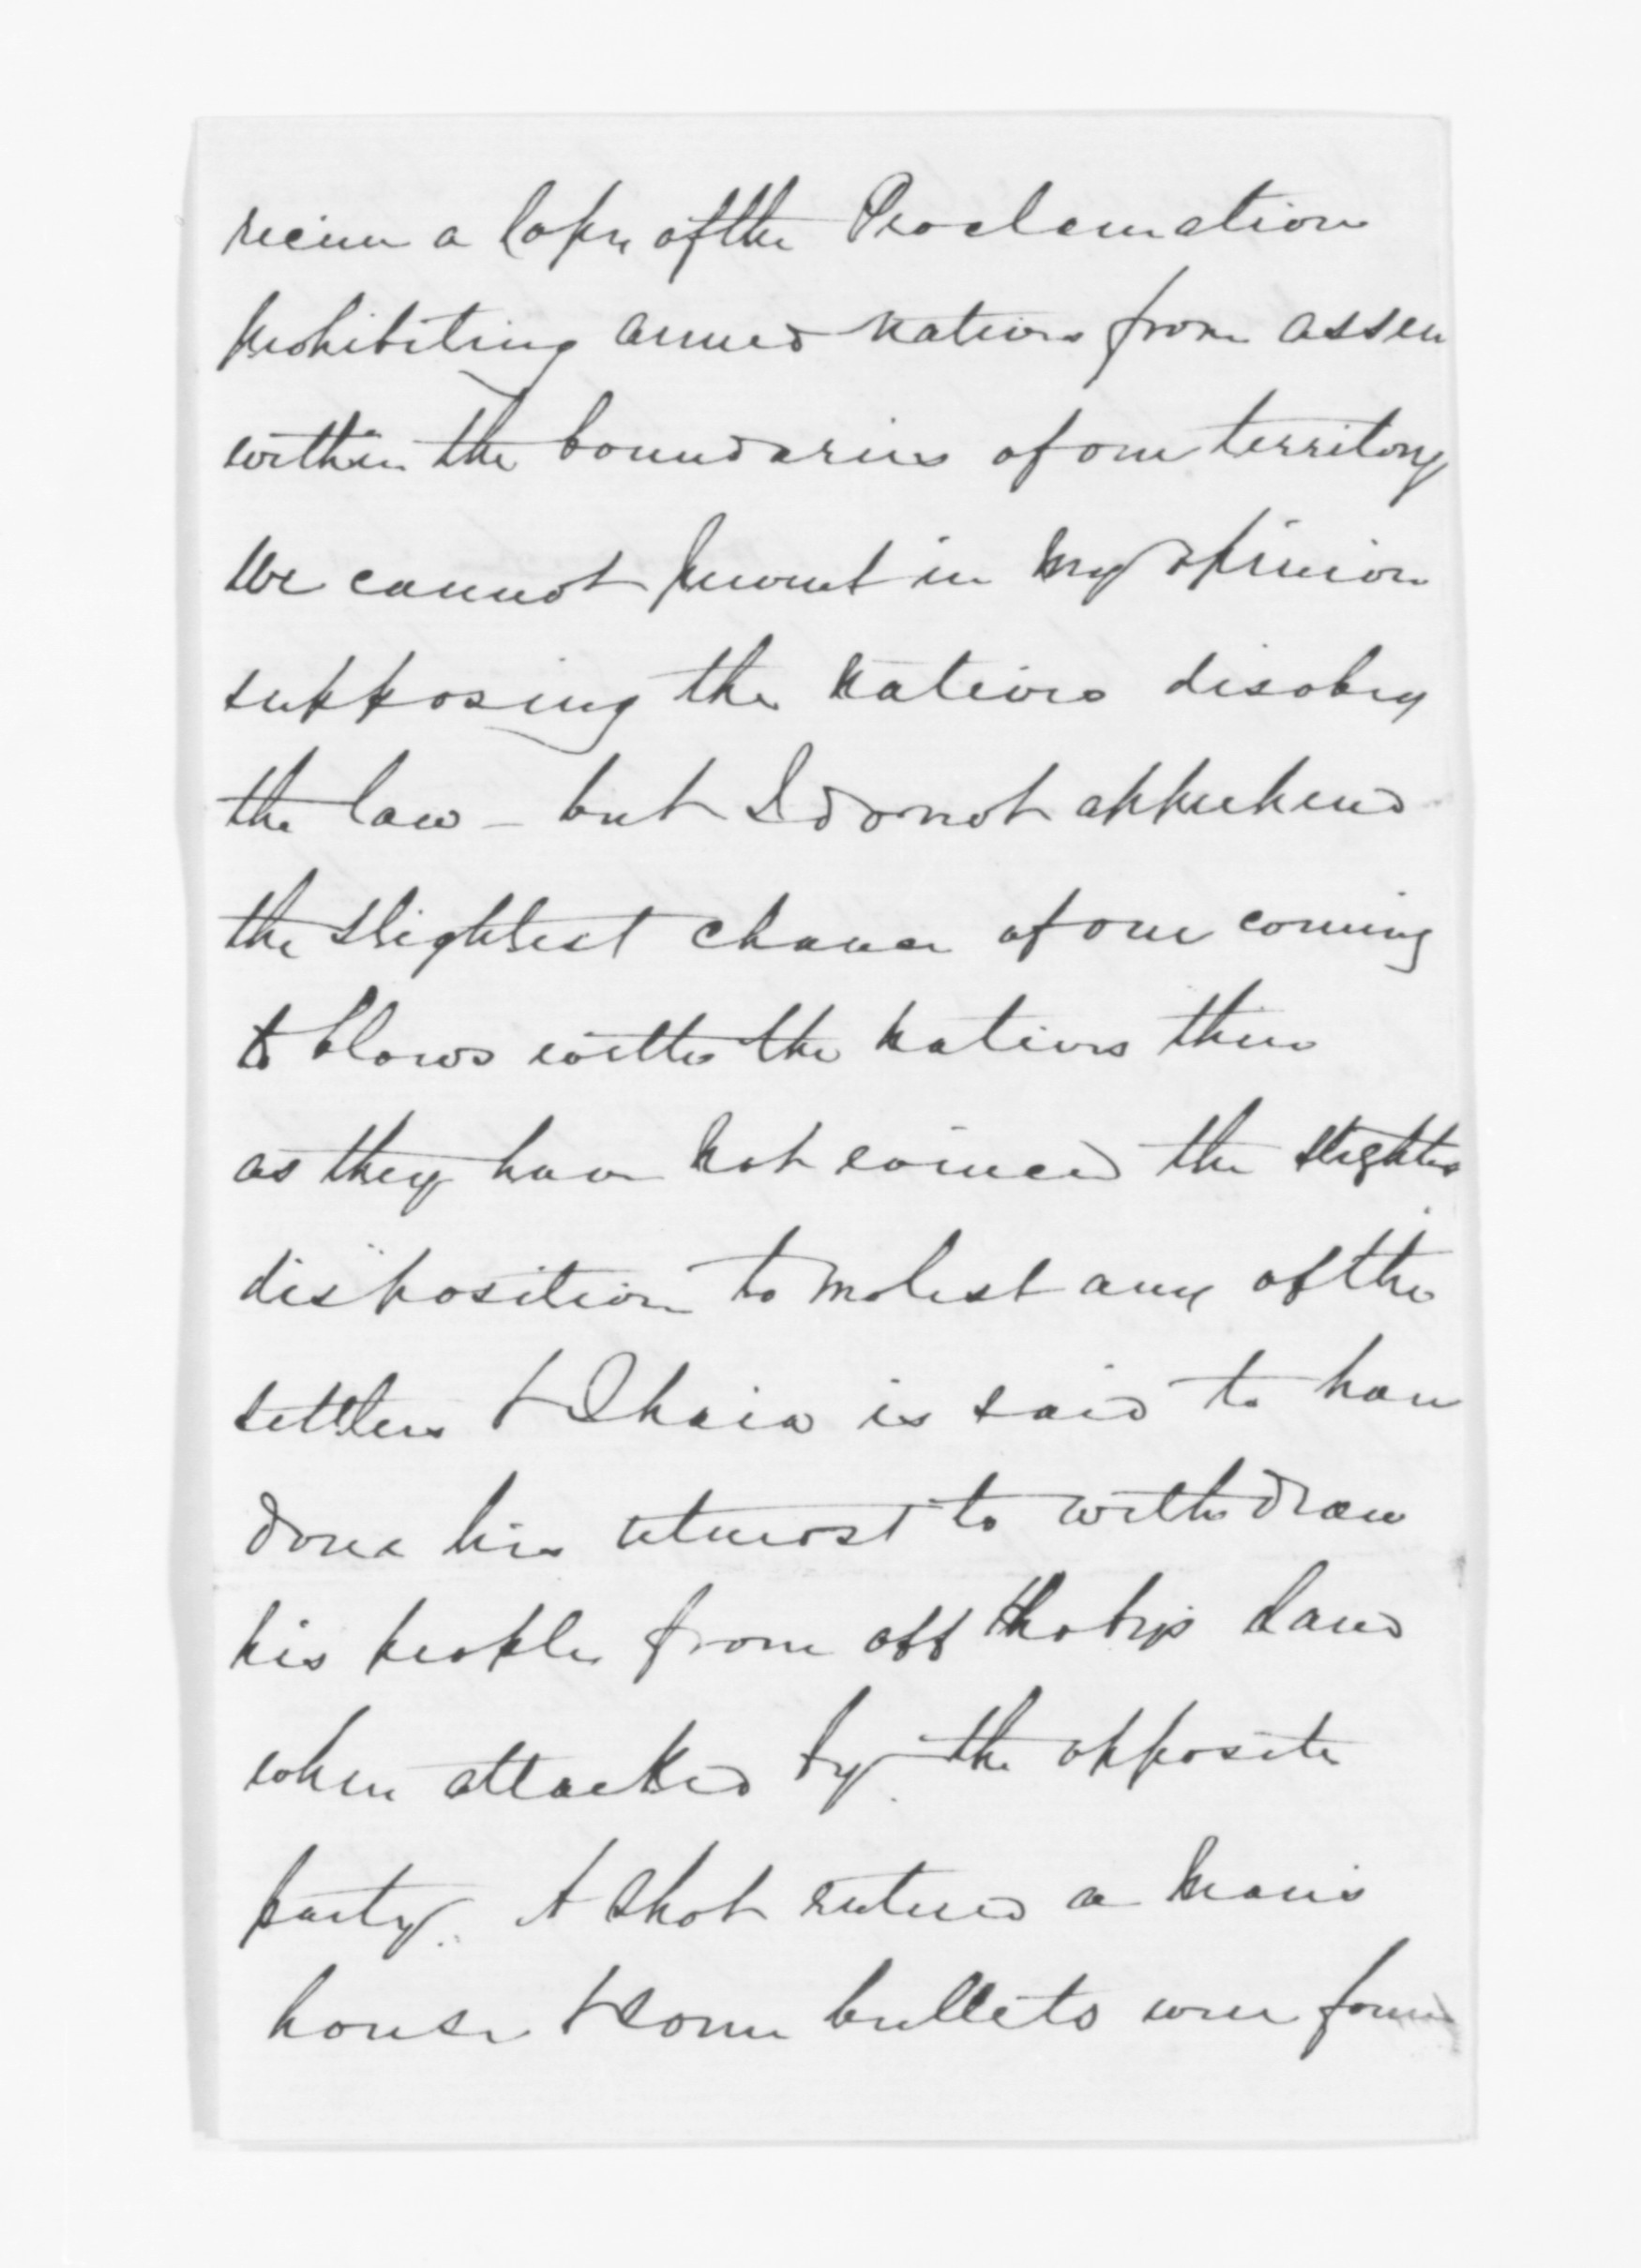 receive a Copy of the Proclamation
prohibiting armed natives from assem
within the boundaries of our territory
We cannot prevent in my opinion
supposing the natives disobey
the law – but I do not apprehend
the slightest chance of our coming
to blows with the natives there
as they have not evinced the slightes
disposition to molest any of the
settlers & Ihaia is said to have
done his utmost to withdraw
his people from off land
when attacked by the opposite
party. A shot entered a man's
house & some bullets were found